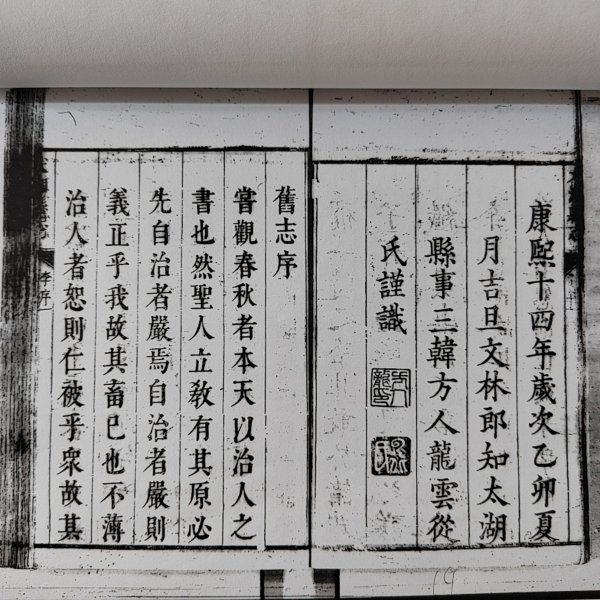 康熙十四年歲次乙卯夏
月吉旦文林郎知太湖
縣事三韓方人龍雲從
氏謹識
舊志序
嘗觀春秋者本天以治人之
書也然聖人立敎有其原必
先自治者嚴焉自治者嚴則
義正乎我故其畜已也不薄
治人者恕則仁被乎衆故其